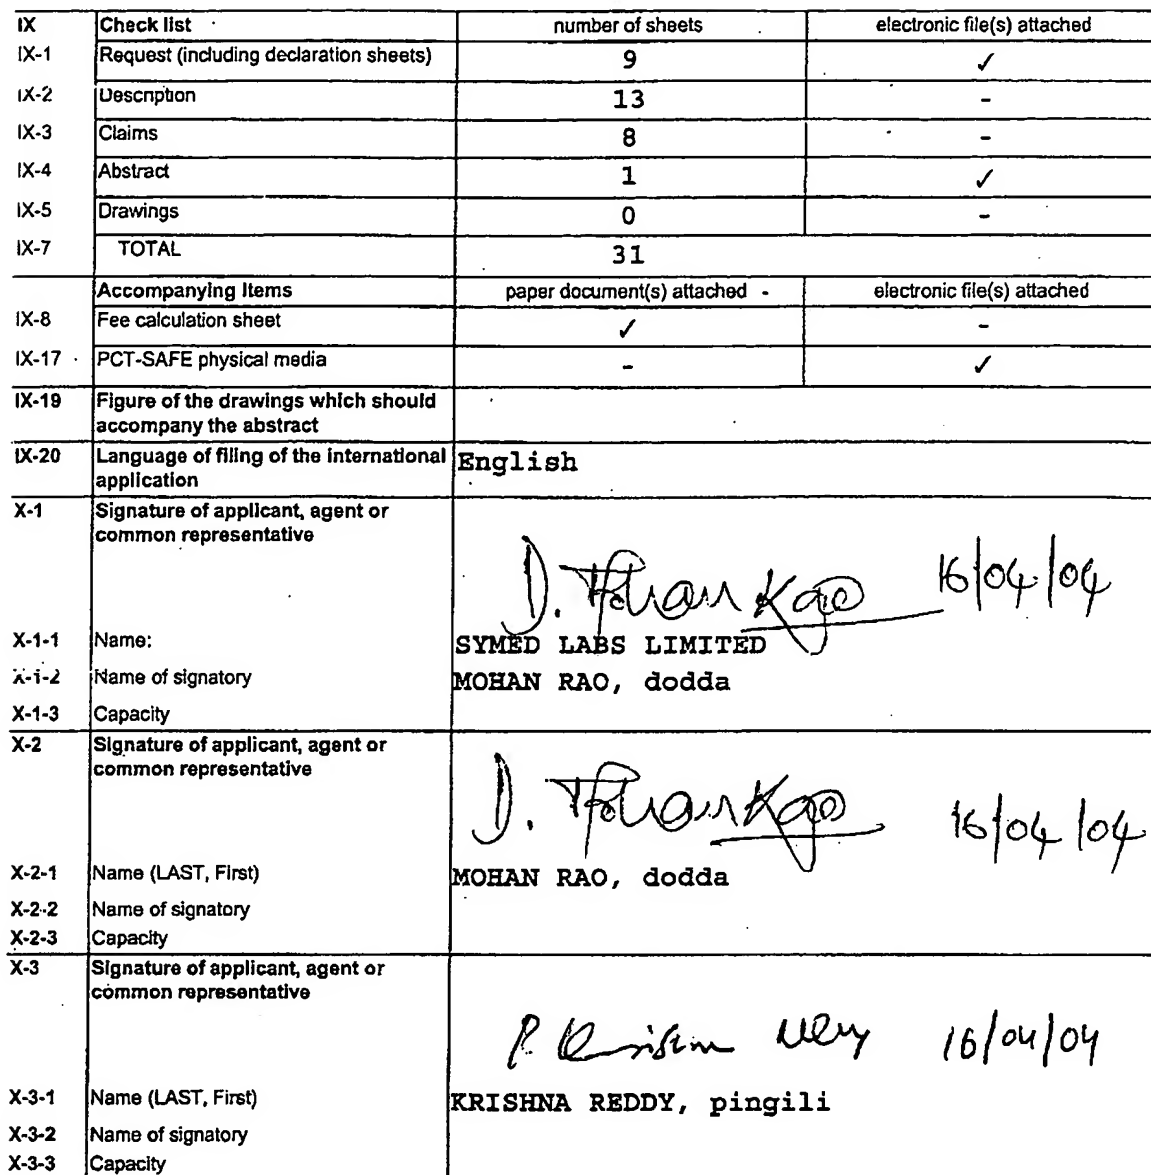 IX Check list number of sheets electronic file(s) attached
IX-1 Request (including declaration sheets) 9 ✓
IX-2 Description 13 -
IX-3 Claims 8 -
IX-4 Abstract 1 ✓
IX-5 Drawings 0 -
IX-7 TOTAL 31
Accompanying Items paper document(s) attached - electronic file(s) attached
IX-8 Fee calculation sheet ✓ -
IX-17 PCT-SAFE physical media - ✓
IX-19 Figure of the drawings which should
accompany the abstract
IX-20 Language of filing of the international English
application
X-1 Signature of applicant, agent or
common representative
D. Mohan Rao 16/04/04
X-1-1 Name: SYMED LABS LIMITED
X-1-2 Name of signatory MOHAN RAO, dodda
X-1-3 Capacity
X-2 Signature of applicant, agent or
common representative
D. Mohan Rao 16/04/04
X-2-1 Name (LAST, First) MOHAN RAO, dodda
X-2-2 Name of signatory
X-2-3 Capacity
X-3 Signature of applicant, agent or
common representative
P. Krishna Reddy 16/04/04
X-3-1 Name (LAST, First) KRISHNA REDDY, pingili
X-3-2 Name of signatory
X-3-3 Capacity